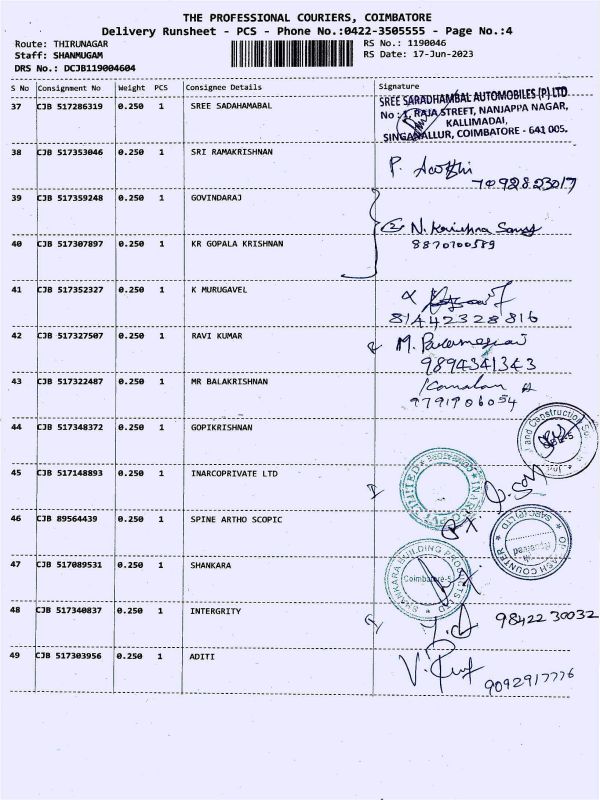 THE PROFESSIONAL COURIERS, COIMBATORE
Delivery Runsheet - PCS - Phone No.:0422-3505555 - Page No.:4
Route: THIRUNAGAR
Staff: SHANMUGAM
DRS No.: DCJB119004604
RS No.: 1190046
RS Date: 17-Jun-2023
S No Consignment No Weight PCS Consignee Details Signature
37 CJB 517286319 0.250 1 SREE SADAHAMABAL
SREE SARADHAMBAL AUTOMOBILES (P) LTD
No : 1, RAJA STREET, NANJAPPA NAGAR,
KALLIMADAI,
SINGANALLUR, COIMBATORE - 641 005.
38 CJB 517353046 0.250 1 SRI RAMAKRISHNAN
P.
39 CJB 517359248 0.250 1 GOVINDARAJ
N. Krishna Samy
8870700589
40 CJB 517307897 0.250 1 KR GOPALA KRISHNAN
41 CJB 517352327 0.250 1 K MURUGAVEL
81442328816
42 CJB 517327507 0.250 1 RAVI KUMAR
M.
9894341343
43 CJB 517322487 0.250 1 MR BALAKRISHNAN
9791906054
44 CJB 517348372 0.250 1 GOPIKRISHNAN
and Construction
45 CJB 517148893 0.250 1 INARCOPRIVATE LTD
LIMITED
46 CJB 89564439 0.250 1 SPINE ARTHO SCOPIC
COUNTER
47 CJB 517089531 0.250 1 SHANKARA
SHANKARA BUILDING PRODUCTS LTD
Coimbatore-5
48 CJB 517340837 0.250 1 INTERGRITY
98422 30032
49 CJB 517303956 0.250 1 ADITI
9092917776